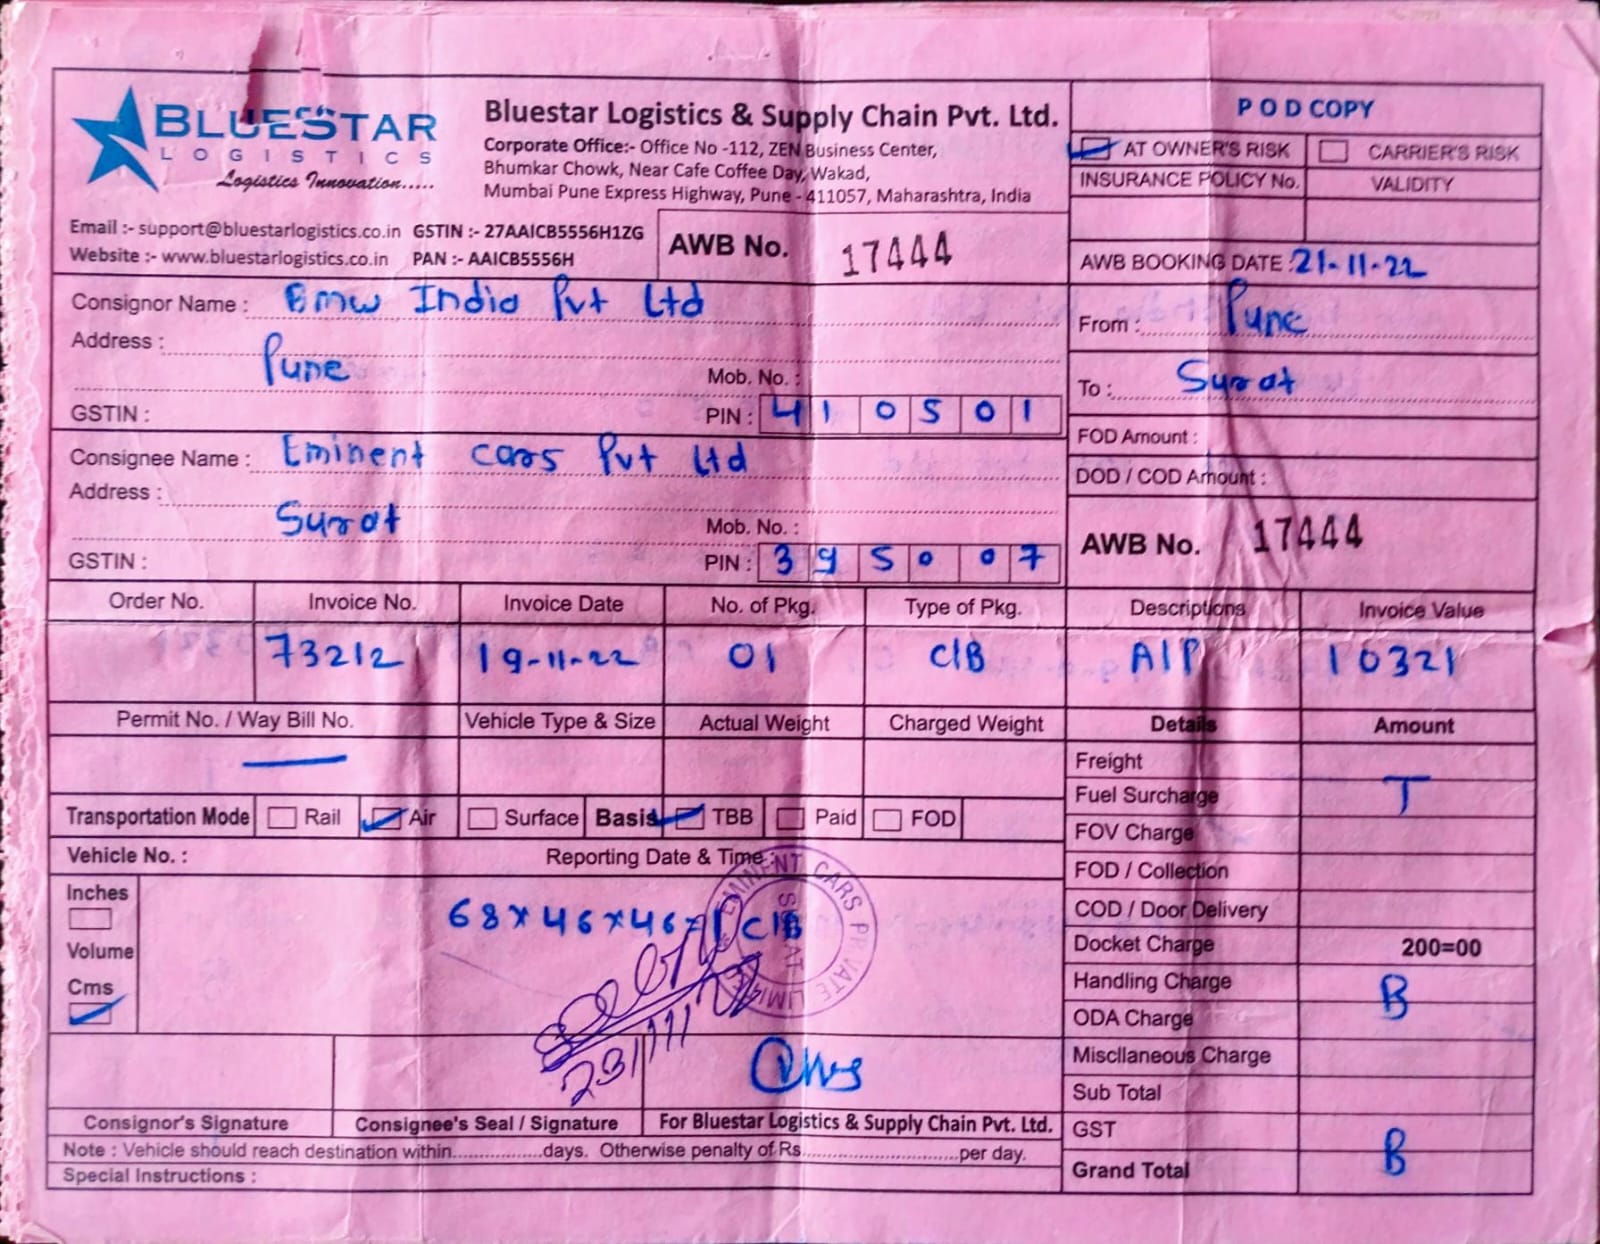 BLUESTAR
LOGISTICS
Logistics Innovation.....
Bluestar Logistics & Supply Chain Pvt. Ltd.
Corporate Office:- Office No -112, ZEN Business Center,
Bhumkar Chowk, Near Cafe Coffee Day, Wakad,
Mumbai Pune Express Highway, Pune - 411057, Maharashtra, India
Email :- support@bluestarlogistics.co.in GSTIN :- 27AAICB5556H1ZG
Website :- www.bluestarlogistics.co.in PAN :- AAICB5556H
AWB No. 17444
POD COPY
AT OWNER'S RISK CARRIER'S RISK
INSURANCE POLICY No. VALIDITY
AWB BOOKING DATE : 21-11-22
From : Pune
To : Surat
FOD Amount :
DOD / COD Amount :
AWB No. 17444
Consignor Name : Bmw India Pvt Ltd
Address :
Pune Mob. No. :
GSTIN : PIN : 410501
Consignee Name : Eminent cars Pvt Ltd
Address :
Surat Mob. No. :
GSTIN : PIN : 395007
Order No. Invoice No. Invoice Date No. of Pkg. Type of Pkg. Descriptions Invoice Value
73212 19-11-22 01 C/B A/P 10321
Permit No. / Way Bill No. Vehicle Type & Size Actual Weight Charged Weight Details Amount
Transportation Mode Rail Air Surface Basis TBB Paid FOD
Vehicle No. : Reporting Date & Time :
Inches
Volume
Cms
68×46×46=1 C/B
EMINENT CARS PRIVATE LIMITED
SURAT
23/11/22
Consignor's Signature Consignee's Seal / Signature For Bluestar Logistics & Supply Chain Pvt. Ltd.
Note : Vehicle should reach destination within................days. Otherwise penalty of Rs.............................per day.
Special Instructions :
Freight
Fuel Surcharge T
FOV Charge
FOD / Collection
COD / Door Delivery
Docket Charge 200=00
Handling Charge B
ODA Charge
Miscllaneous Charge
Sub Total
GST
Grand Total B